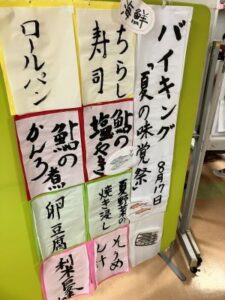 バイキング
「夏の味覚祭」
8月17日
海鮮
ちらし
寿司
鮎の
塩焼き
夏野菜の
焼き浸し
ロールパン
鮎の
かんろ煮
卵豆腐